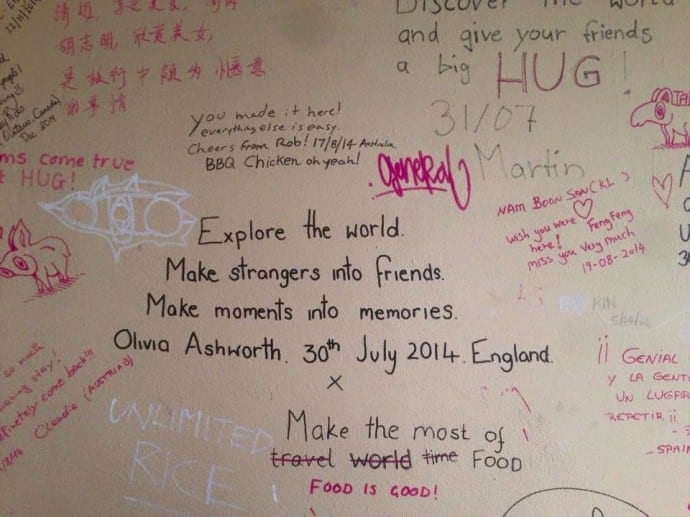 清迈
胡志明, 欣赏美女,
是旅行中最为惬意
的事情
Discover the world
and give your friends
a big HUG!
31/07
Martin
you made it here!
everything else is easy.
Cheers from Rob! 17/8/14 Australia
BBQ Chicken oh yeah!
general
Dec 2014
come true
HUG!
NAM BOON SAN (KL)
wish you were
here! Feng Feng
miss you very much
19-08-2014
Explore the world.
Make strangers into friends.
Make moments into memories.
Olivia Ashworth. 30th July 2014. England.
x
so much
stay!
definetely come back!!!
Claudia (AUSTRIA)
¡¡ GENIAL
Y LA GENT
UN LUGAR
REPETIR ¡¡
- SPAIN
UNLIMITED
RICE
Make the most of
travel world time FOOD
FOOD IS GOOD!